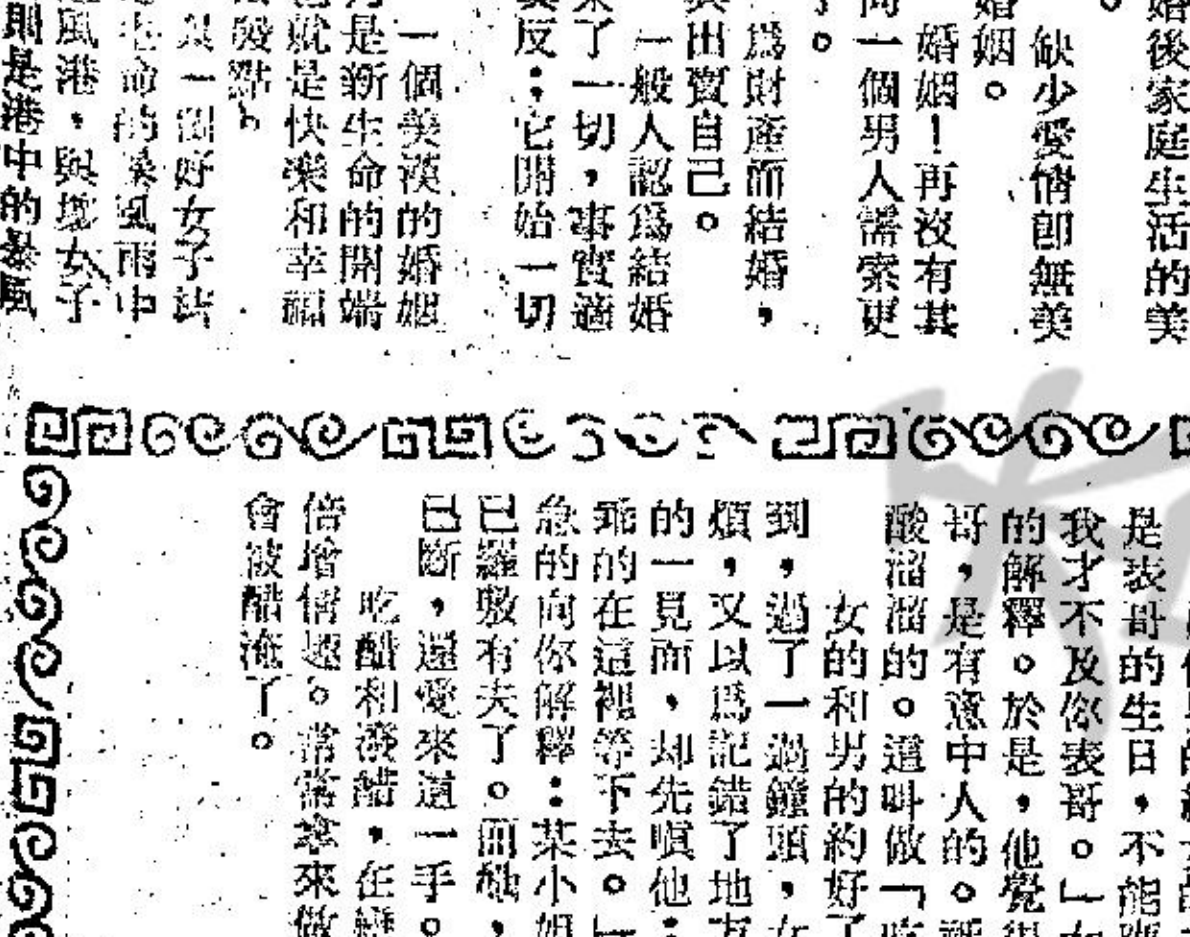 婚後家庭生活的美
缺少愛情卽無美
婚姻。
婚姻！再沒有甚
一個男人需索更
。
爲財產而結婚，
出賣自己。
一般人認爲結婚
了一切，事實適
反：它開始一切
一個美滿的婚姻
是新生命的開端
就是快樂和幸福
一個好女子
風雨中
風港，與壞女子
則是港中的暴風
是表哥的生日，不能
我才不及你表哥。」
的解釋。於是，他覺
哥，是有意中人的。
酸溜溜的。這叫做「
女的和男的約好了
到，過了一過鐘頭，女
煩，又以爲記錯了地方
的一見面，却先嗔他：
乖的在這裡等下去。」
急的向你解釋：某小姐
已羅敷有夫了。而她，
已斷，還愛來這一手。
吃醋和潑醋，在戀
倍增情趣。常常拿來做
會被醋淹了。